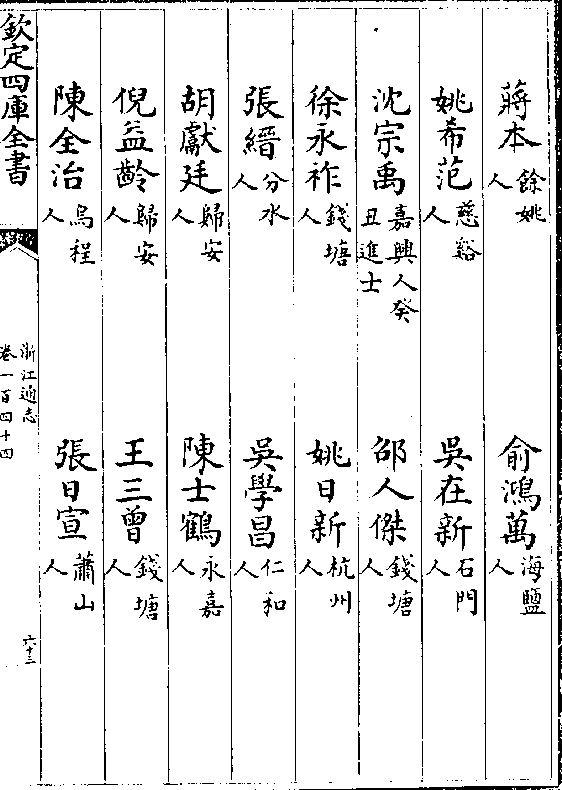 蔣本餘姚人　俞鴻萬海鹽人
姚希范慈谿人　吳在新石門人
沈宗禹嘉興人癸丑進士　邵人傑錢塘人
徐永祚錢塘人　姚日新杭州人
張縉分水人　吳學昌仁和人
胡獻廷歸安人　陳士鶴永嘉人
倪益齡歸安人　王三曾錢塘人
陳全治烏程人　張日宣蕭山人
欽定四庫全書　浙江通志卷一百四十四　六十三